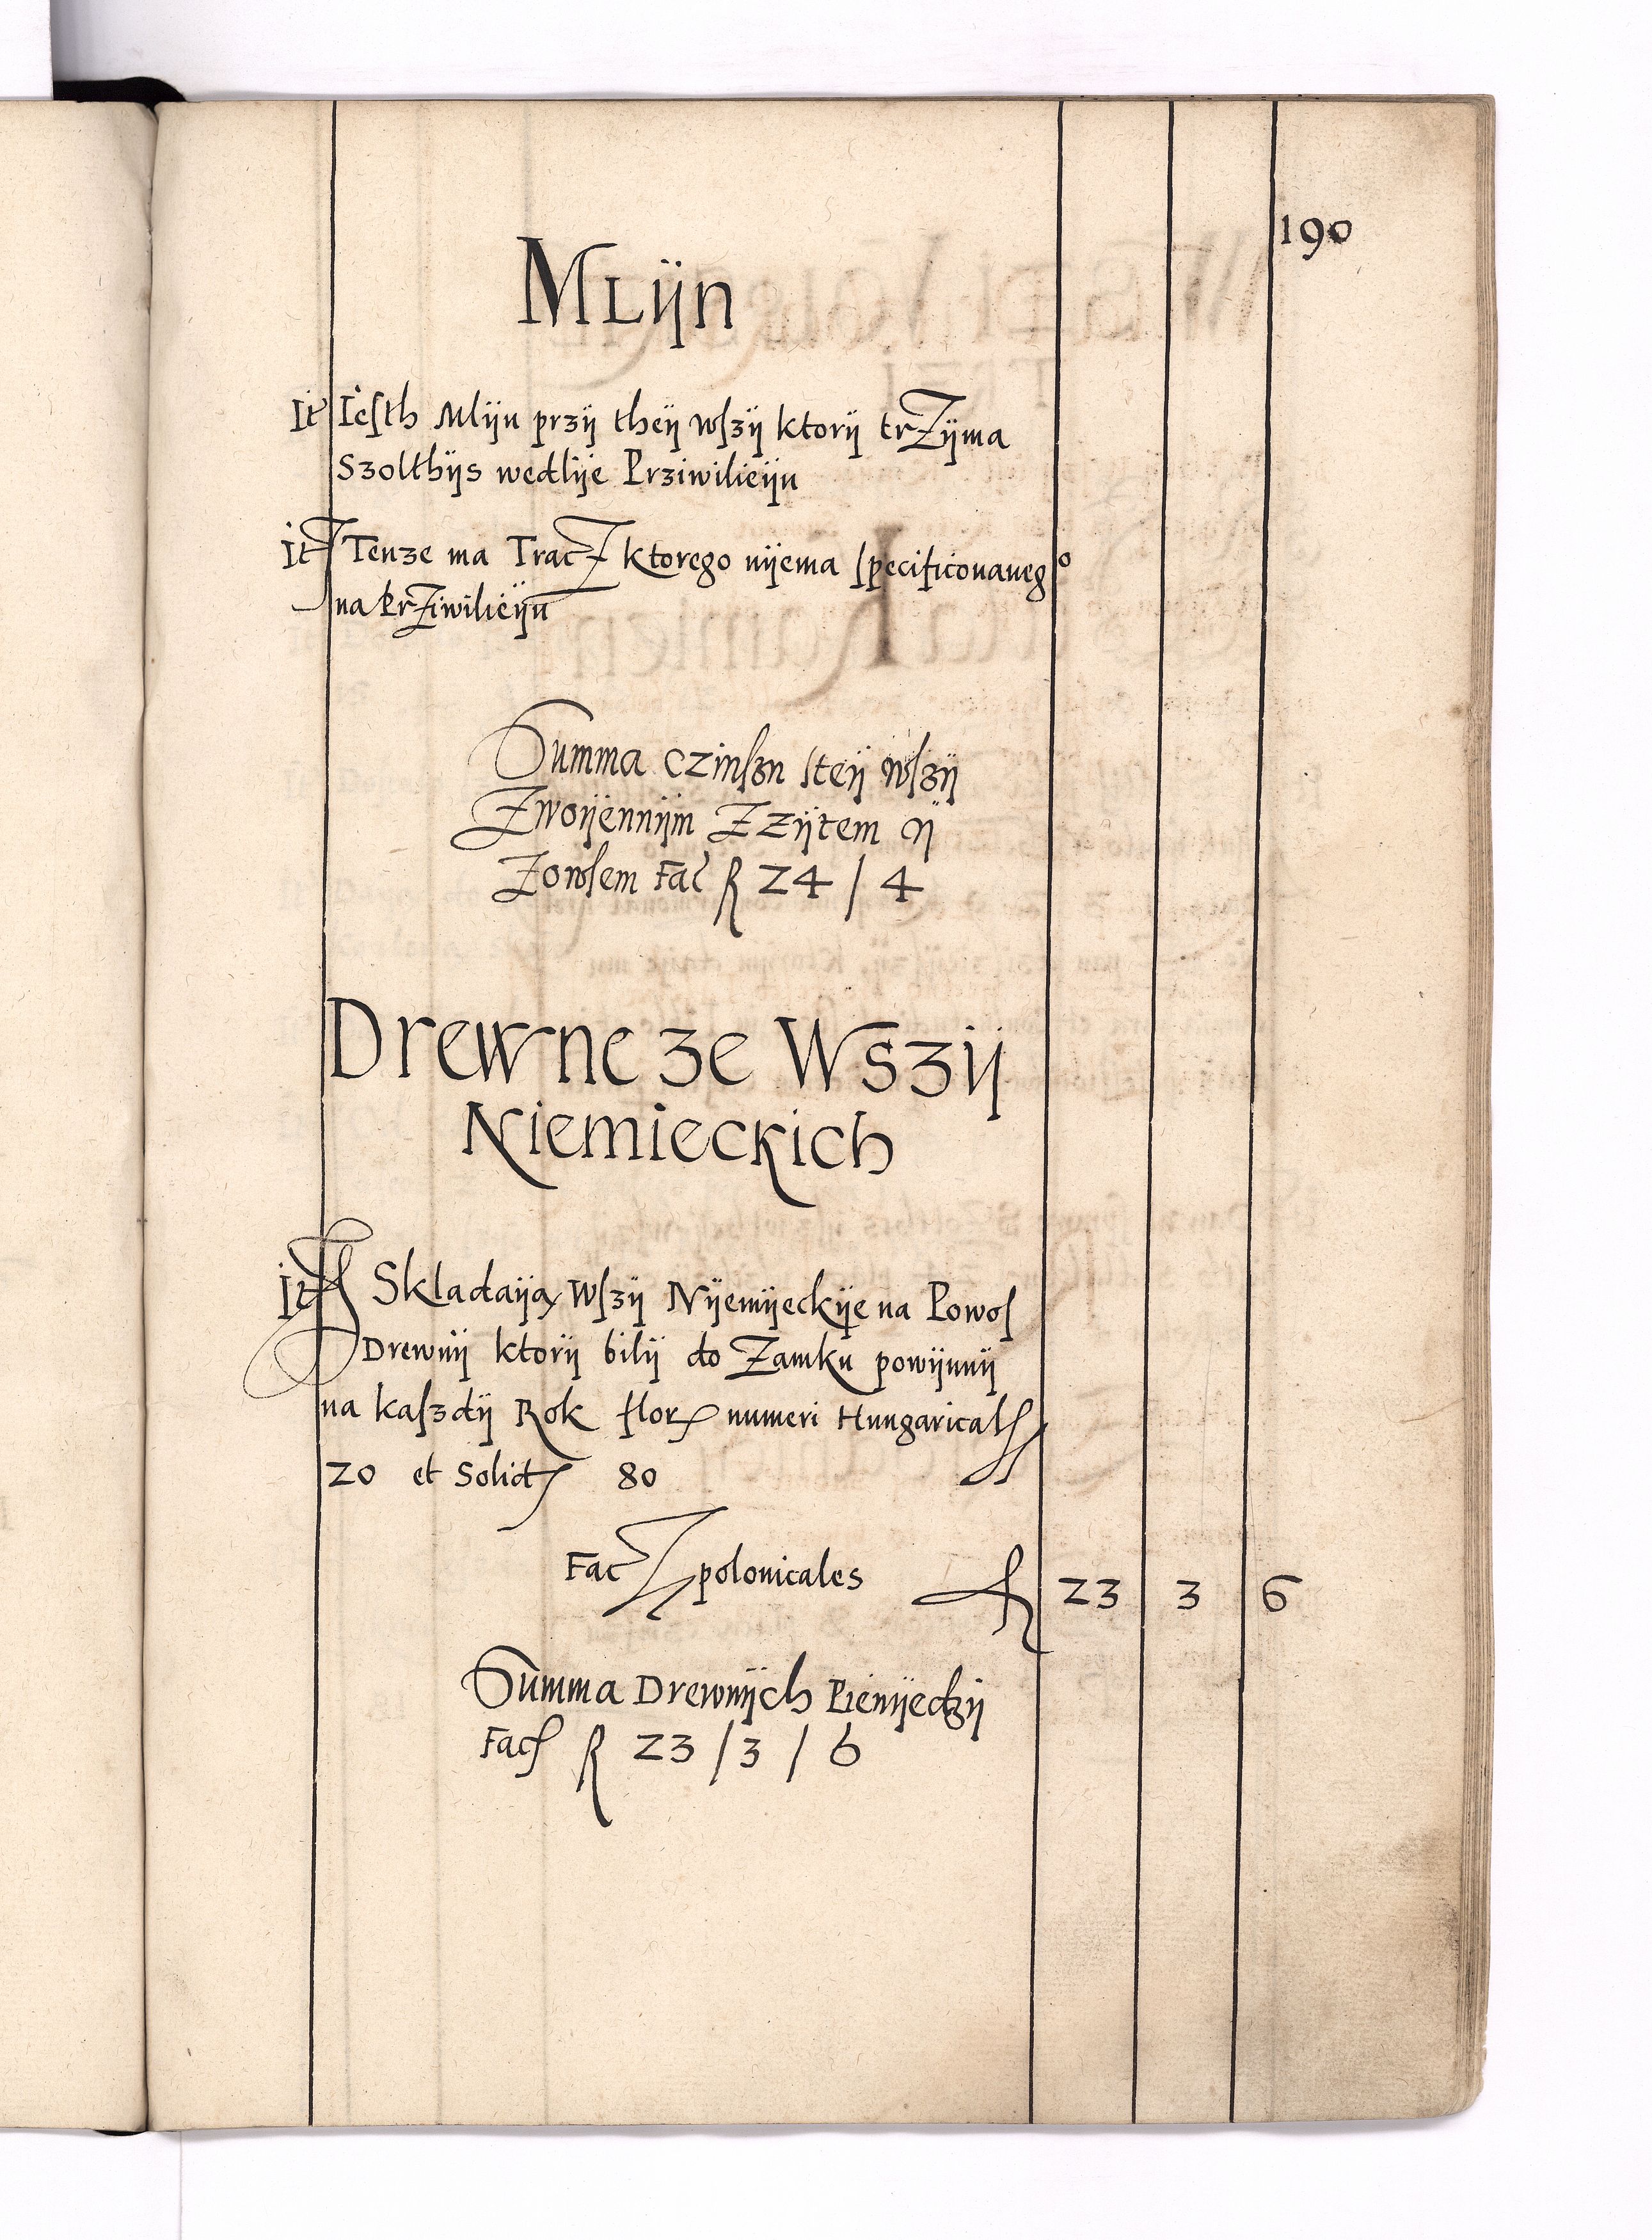 190
Mlÿn
It Iesth Mlÿn przÿ theÿ wszÿ ktorÿ trzÿma
Szolthÿs wedlÿe Prziwilieÿu
It Tenze ma Tracz ktorego nÿema specificowanego
na Prziwilieÿu
Summa czinszu steÿ wszÿ
Zwoÿennÿm Zzÿtem ÿ
Zowsem Fac R 24 / 4
Drewne ze Wszÿ
Niemieckich
It Skladaÿą Wszÿ Nÿemÿeckÿe na Powos
Drewnÿ ktorÿ bilÿ do Zamku powÿnnÿ
na kaszdÿ Rok flor numeri Hungarical
20 et Solid 80
Fac polonicales R 23 3 6
Summa Drewnÿch Pienÿedzÿ
Fac R 23 / 3 / 6